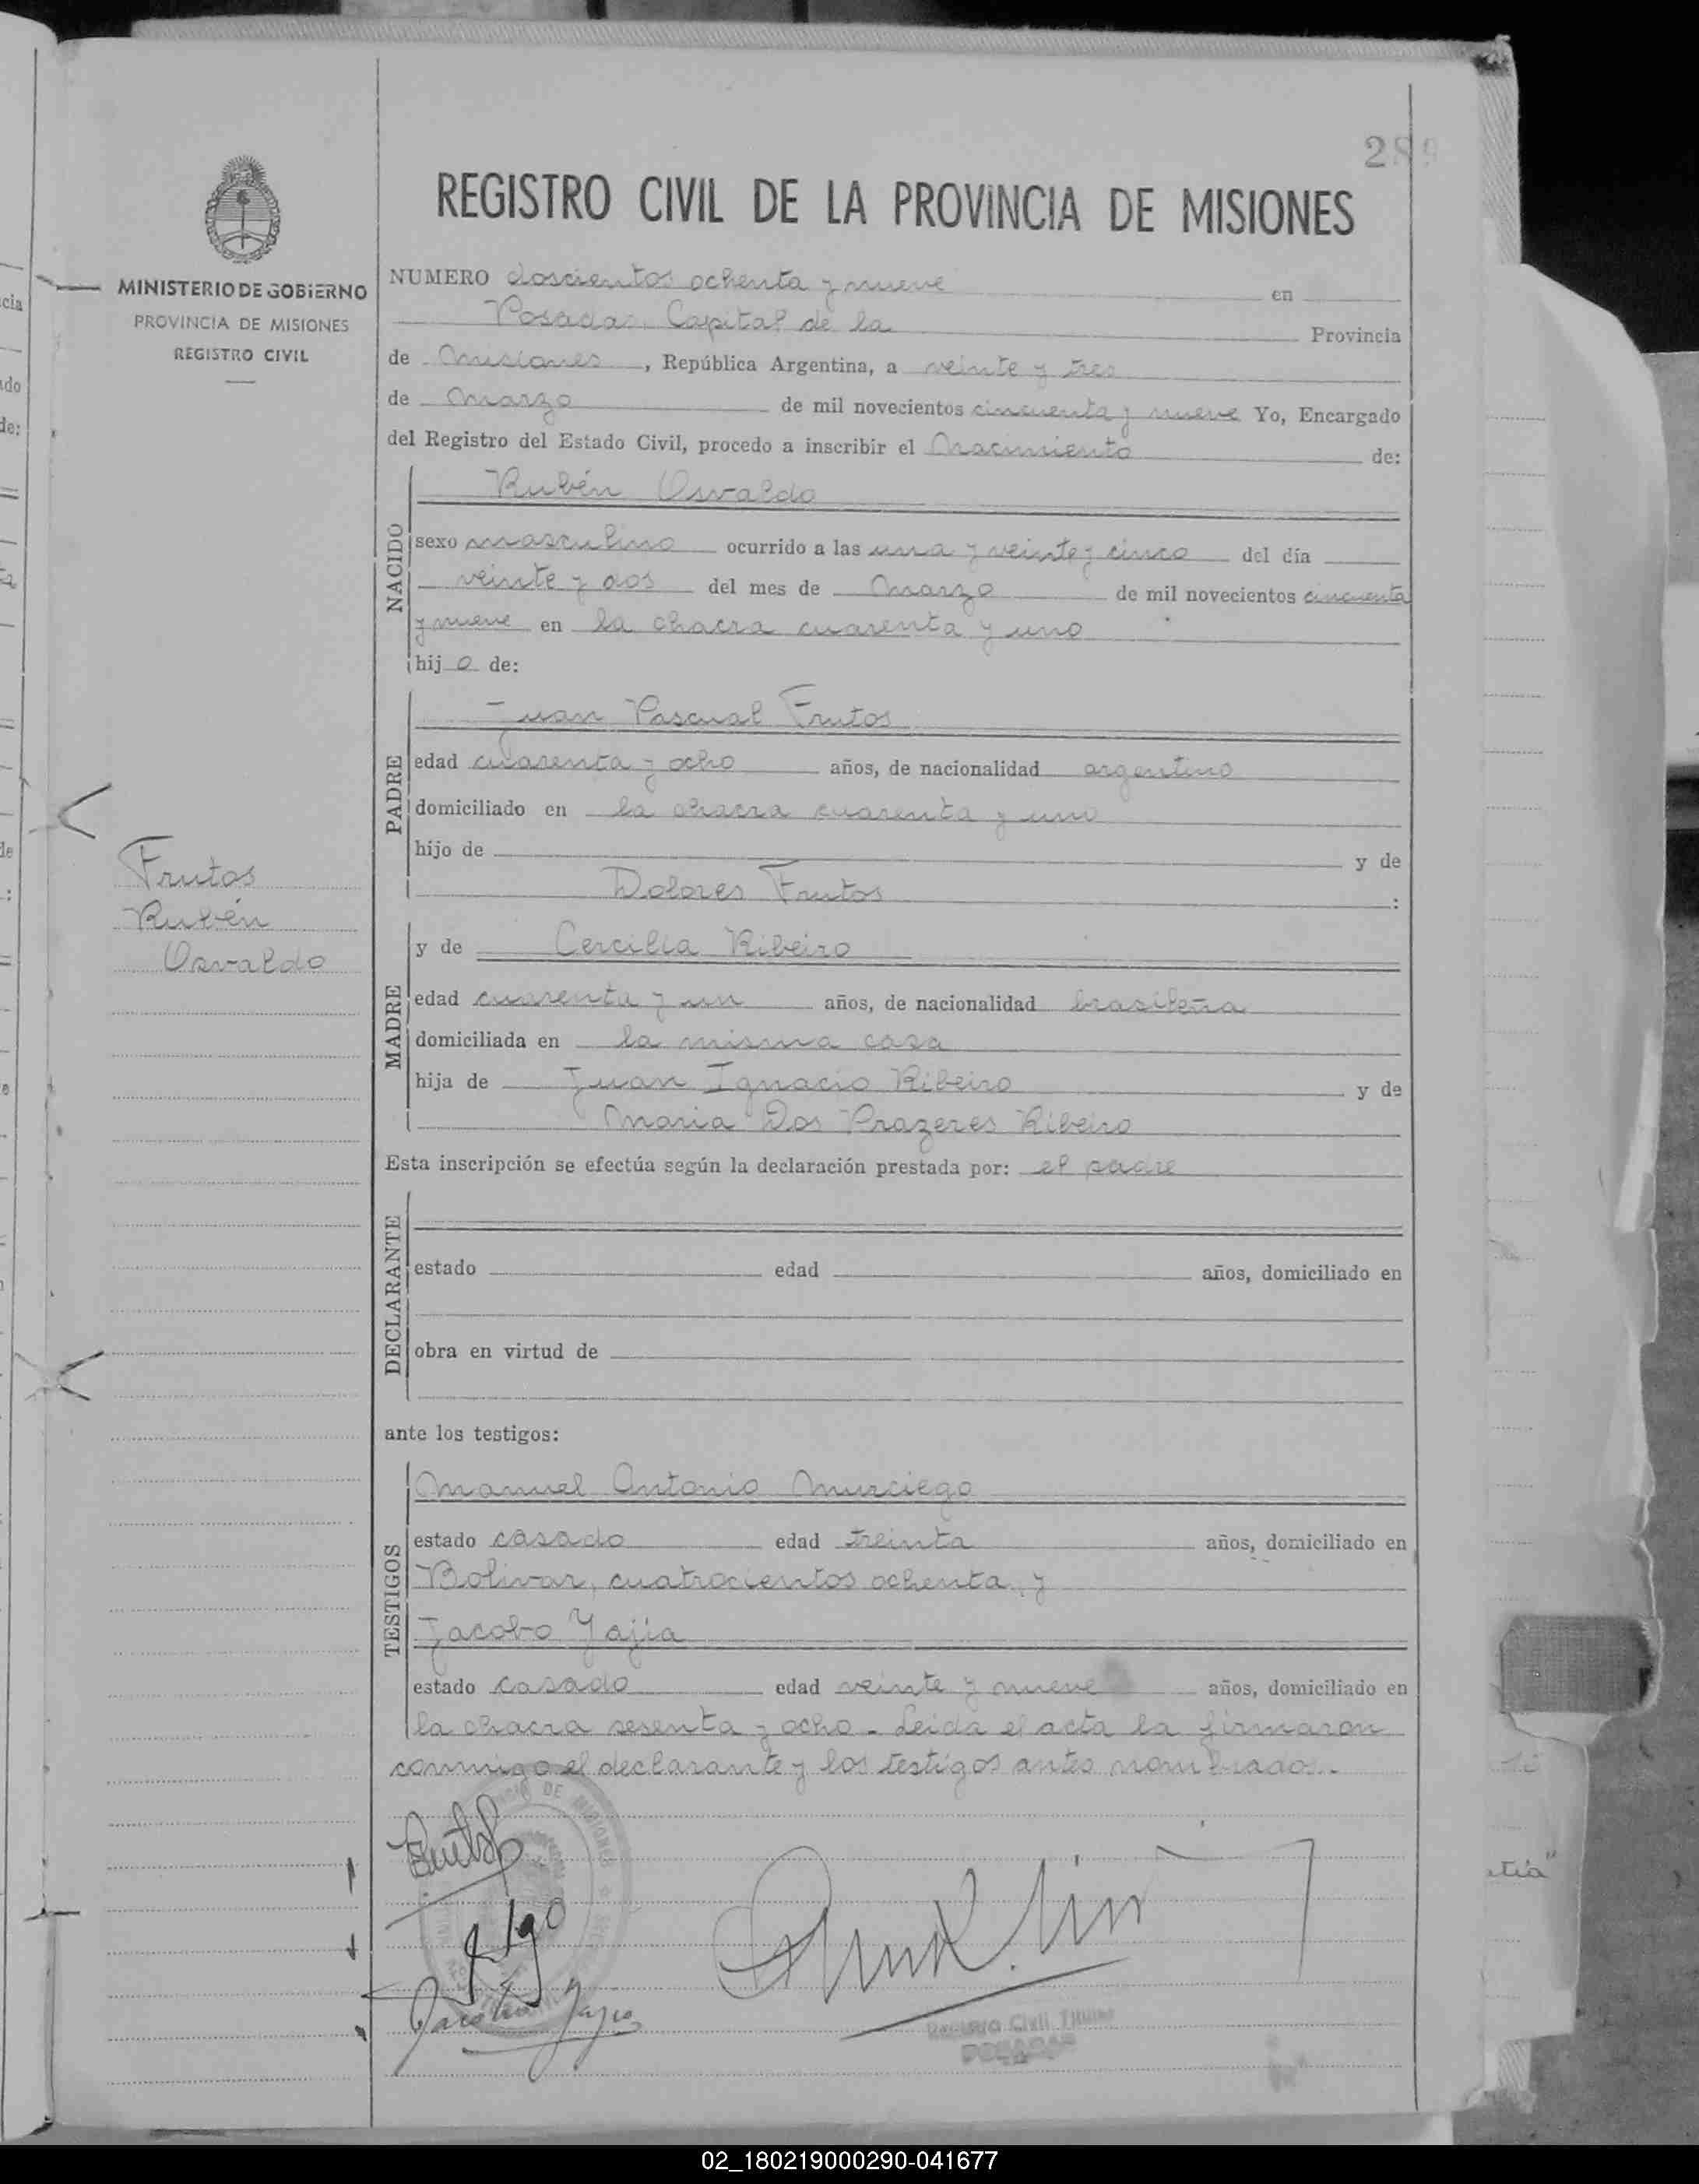 289
REGISTRO CIVIL DE LA PROVINCIA DE MISIONES
MINISTERIO DE GOBIERNO
PROVINCIA DE MISIONES
REGISTRO CIVIL
NUMERO doscientos ochenta y nueve en
Posadas, Capital de la Provincia
de Misiones, República Argentina, a veinte y tres
de Marzo de mil novecientos cincuenta y nueve Yo, Encargado
del Registro del Estado Civil, procedo a inscribir el Nacimiento de:
NACIDO
Rubén Osvaldo
sexo masculino ocurrido a las una y veinte y cinco del día
veinte y dos del mes de Marzo de mil novecientos cincuenta
y nueve en la chacra cuarenta y uno
hijo de:
PADRE
Juan Pascual Frutos
edad cuarenta y ocho años, de nacionalidad argentino
domiciliado en la chacra cuarenta y uno
hijo de y de
Dolores Frutos :
Frutos
Rubén
Osvaldo
MADRE
y de Cercilia Ribeiro
edad cuarenta y un años, de nacionalidad brasileña
domiciliada en la misma casa
hija de Juan Ignacio Ribeiro y de
Maria Dos Prazeres Ribeiro
Esta inscripción se efectúa según la declaración prestada por: el padre
DECLARANTE
estado edad años, domiciliado en
obra en virtud de
ante los testigos:
TESTIGOS
Manuel Antonio Murciego
estado casado edad treinta años, domiciliado en
Bolivar, cuatrocientos ochenta, y
Jacobo Yajia
estado casado edad veinte y nueve años, domiciliado en
la chacra sesenta y ocho - Leida el acta la firmaron
conmigo el declarante y los testigos antes nombrados.-
DE MISIONES
Registro Civil Titular
POSADAS
02_180219000290-041677